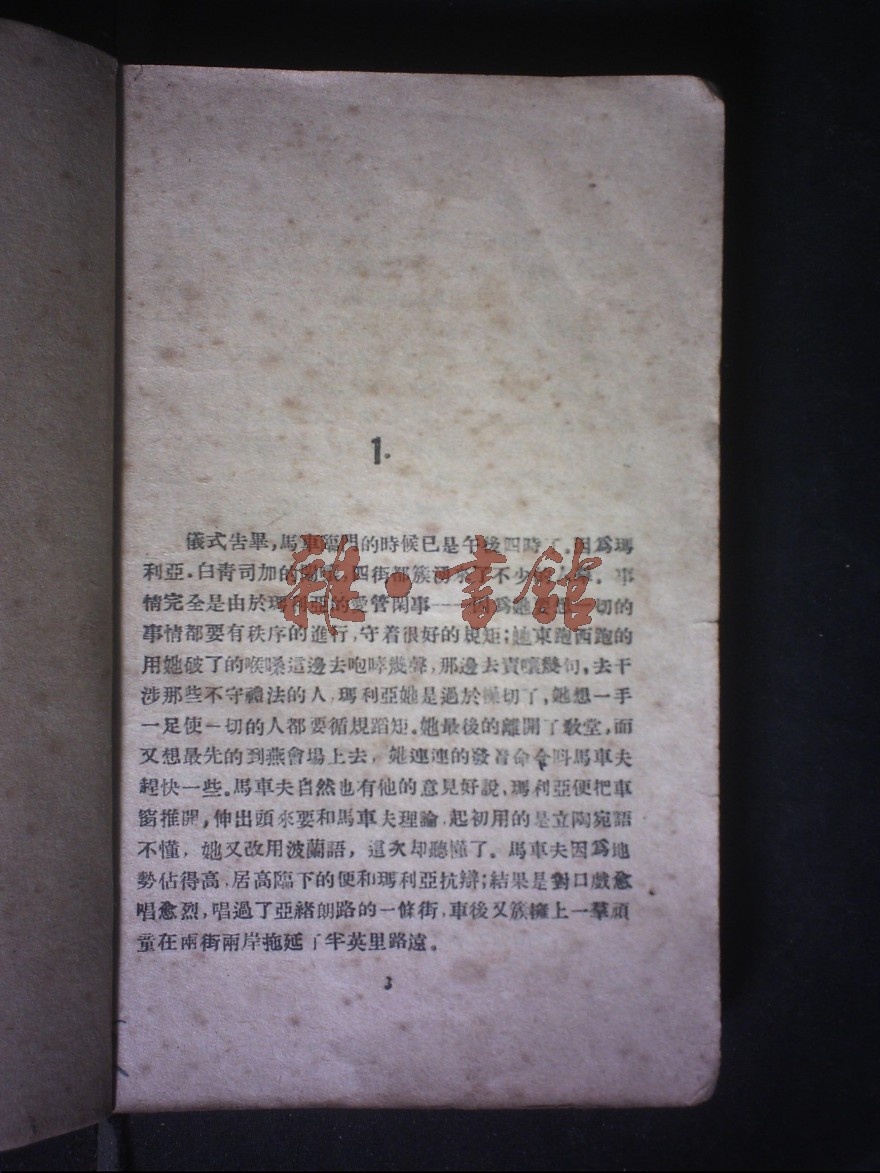 1.
儀式告畢,馬車臨門的時候已是午後四時了。因爲瑪
利亞·白青司加的 四街都簇湧來了不少的 事
情完全是由於瑪利亞的愛管閑事—— 因爲她 一切的
事情都要有秩序的進行,守着很好的規矩;她東跑西跑的
用她破了的喉嗓這邊去咆哮幾聲,那邊去責嚷幾句,去干
涉那些不守禮法的人,瑪利亞她是過於 切了,她想一手
一足使一切的人都要循規蹈矩。她最後的離開了教堂,而
又想最先的到燕會場上去,她連連的發着命令叫馬車夫
趕快一些。馬車夫自然也有他的意見好說,瑪利亞便把車
窗推開,伸出頭來要和馬車夫理論,起初用的是立陶宛語
不懂,她又改用波蘭語,這次却聽懂了。馬車夫因爲地
勢佔得高,居高臨下的便和瑪利亞抗辯;結果是對口戲愈
唱愈烈,唱過了亞緒朗路的一條街,車後又簇擁上一羣頑
童在兩街兩岸拖延了半英里路遠。
3
雜·書館